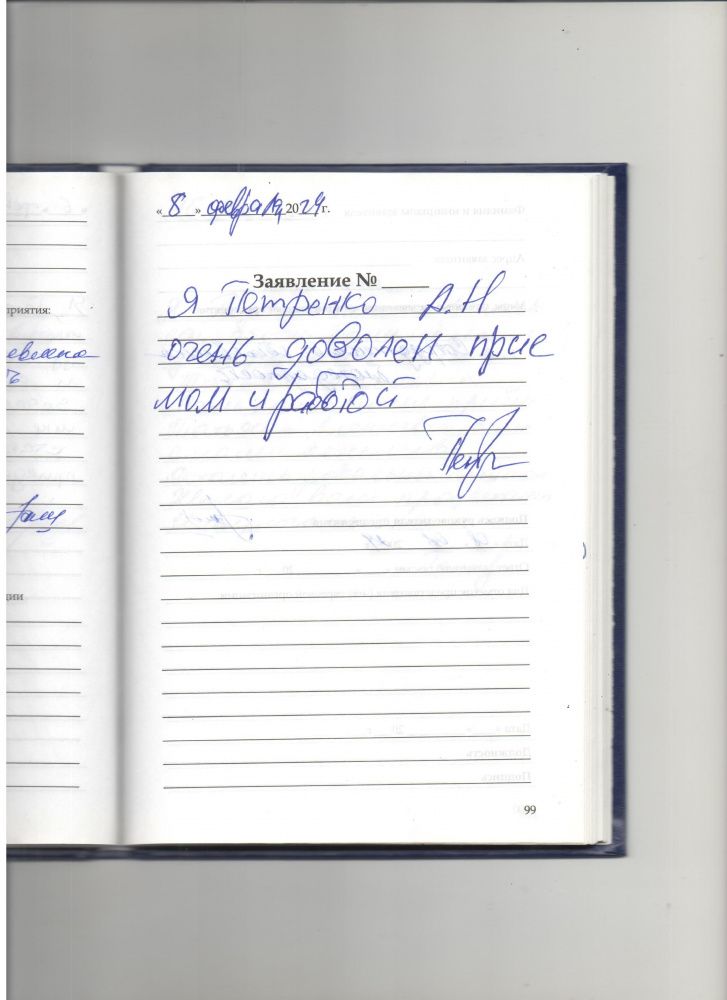 « 8 » февраля 2024 г.
Заявление №
Я Петренко А.Н
очень доволен прие
мом и работой
Петр
приятия:
ции
99